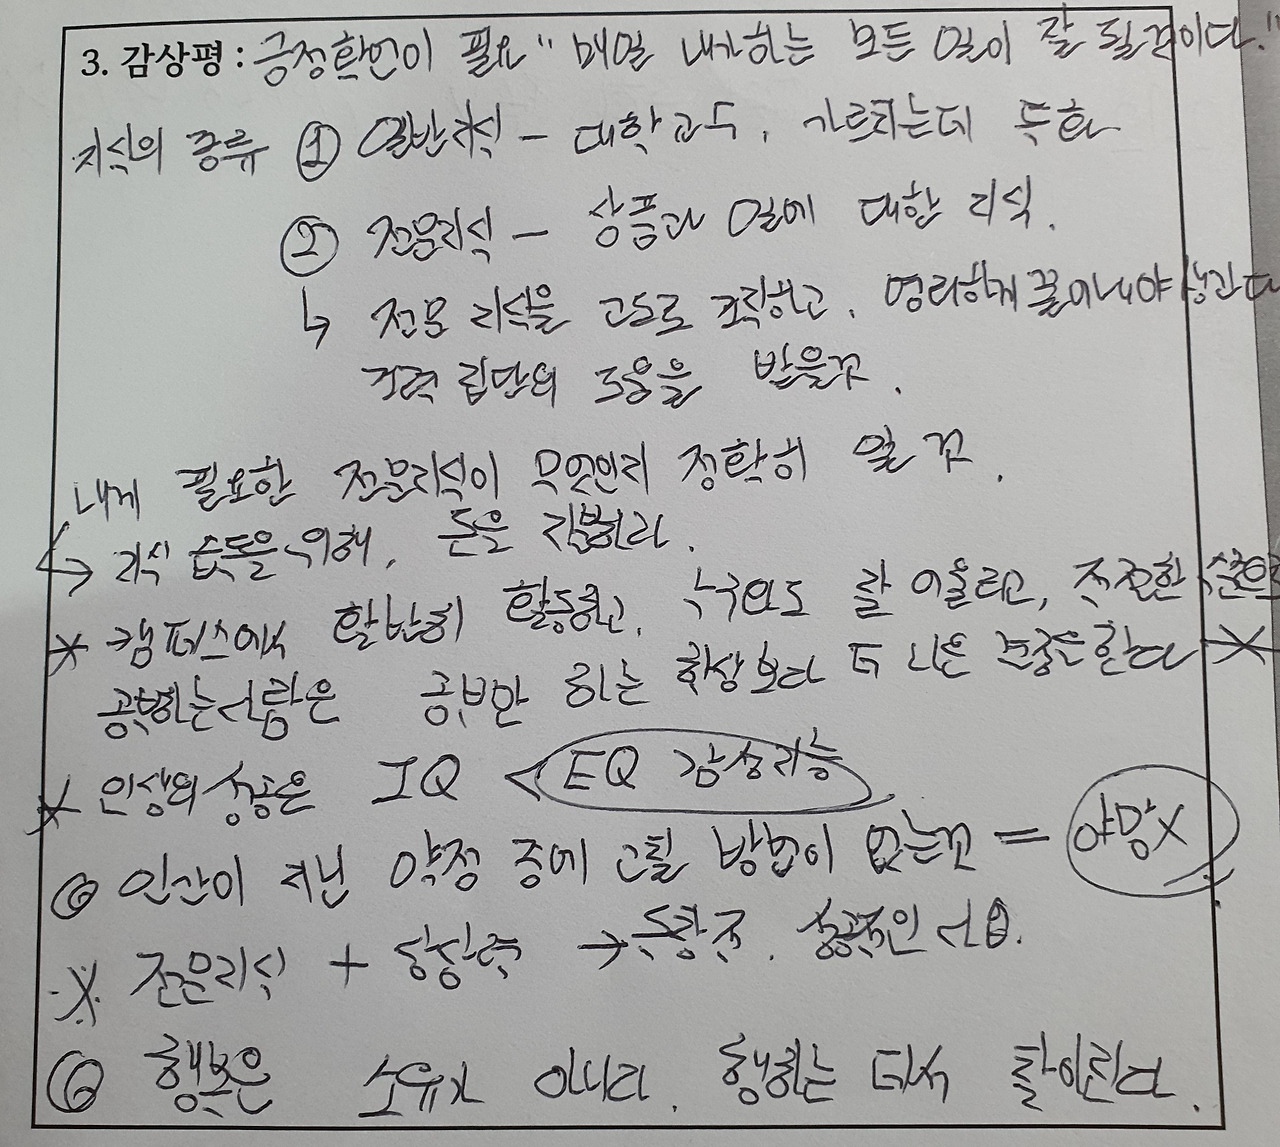 3. 감상평 : 긍정확언이 필요 "매일 내가하는 모든 일이 잘 될것이다."
지식의 종류 ① 일반지식 - 대학교수. 가르치는데 특화
② 전문지식 - 상품과 일에 대한 지식.
↳ 전문 지식을 고도로 조직하고. 영리하게 끌어내야
조력 집단의 도움을 받을것.
내게 필요한 전문지식이 무엇인지 정확히 알 것.
→ 지식 습득을 위해. 돈을 지불하라.
* 캠퍼스에서 활발히 활동하고. 누구와도 잘 어울리고, 적절한 수준으로
공부하는사람은 공부만 하는 학생보다 더 나은 *
* 인생의 성공은 IQ < EQ 감성지능
◎ 인간이 지닌 약점 중에 고칠 방법이 없는것 = 야망X
※ 전문지식 + 상상력 → 독창적. 성공적인 사업.
◎ 행복은 소유가 아니라. 행하는 데서 찾아진다.